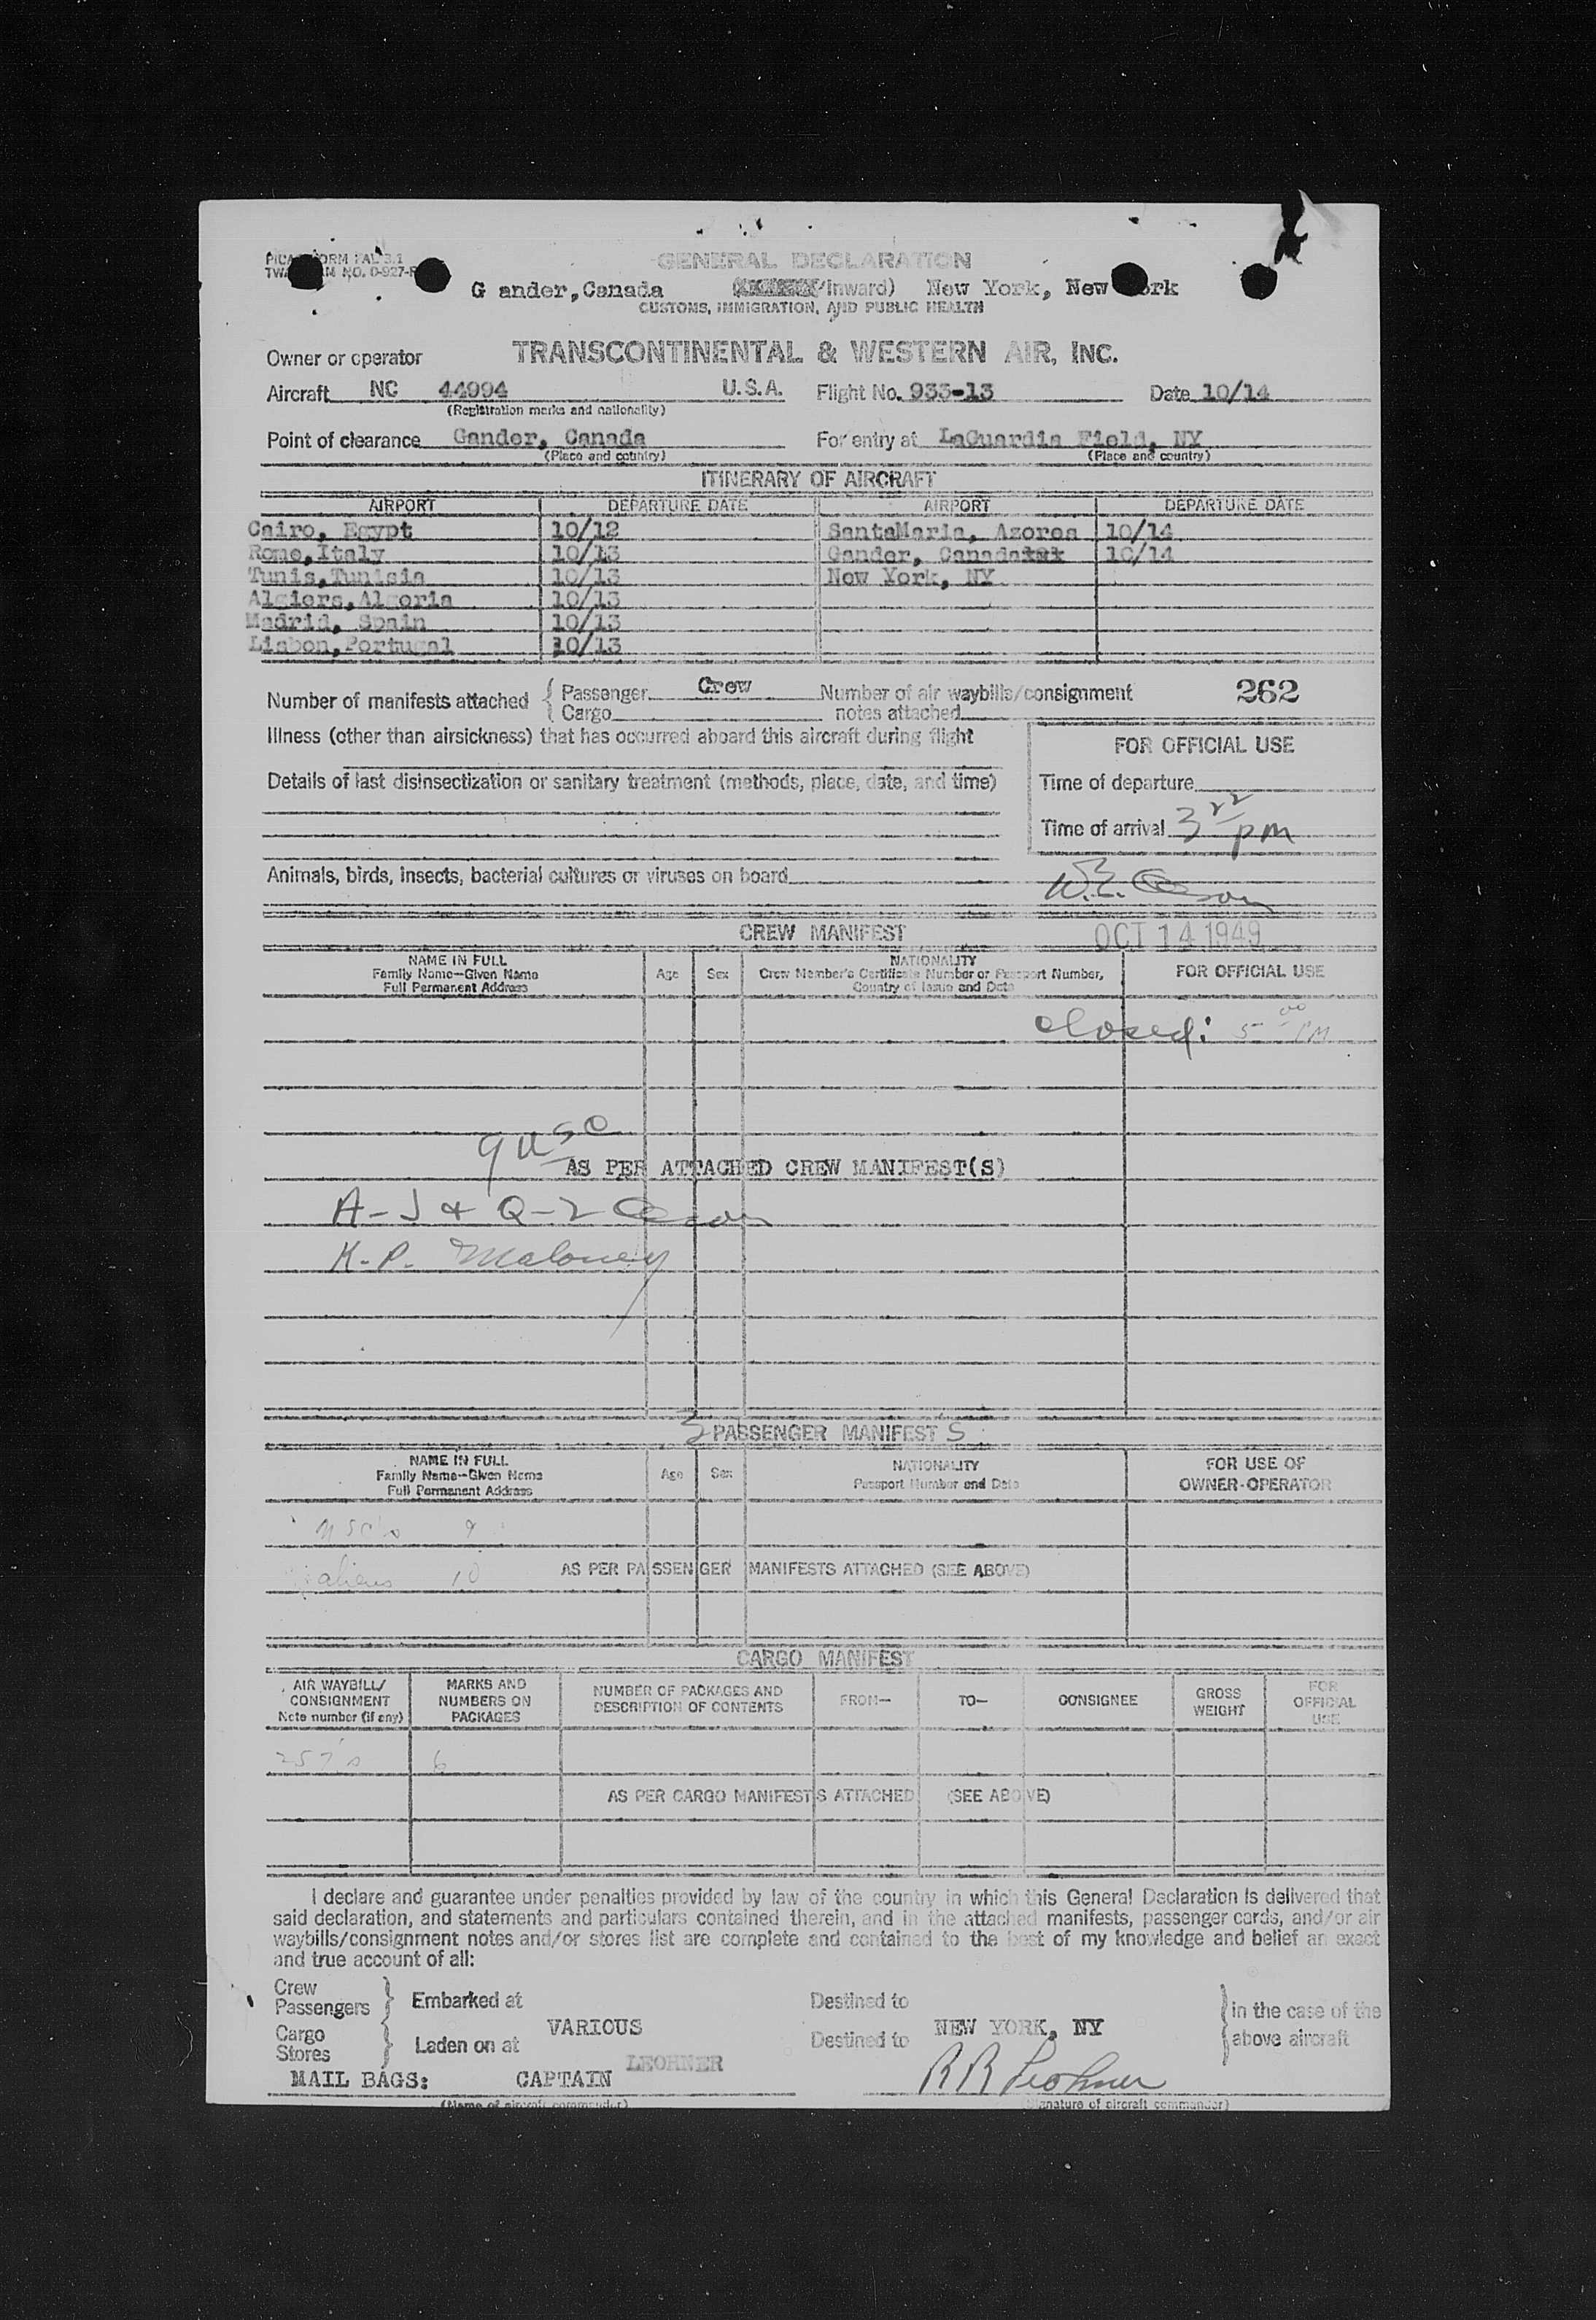 GENERAL DECLARATION
G ander, Canada /Inward) New York, New
CUSTOMS, IMMIGRATION, AND PUBLIC HEALTH
Owner or operator TRANSCONTINENTAL & WESTERN AIR, INC.
Aircraft NC 44994 U.S.A. Flight No. 933-13 Date 10/14
(Registration marks and nationality)
Point of clearance Gander, Canada For entry at LaGuardia Field, NY
(Place and country) (Place and country)
ITINERARY OF AIRCRAFT
AIRPORT DEPARTURE DATE AIRPORT DEPARTURE DATE
Cairo, Egypt 10/12 SantaMaria, Azores 10/14
Rome,Italy 10/13 Gander, Canada 10/14
Tunis,Tunisia 10/13 New York, NY
Algiers,Algeria 10/13
Madrid, Spain 10/13
Lisbon,Portugal 10/13
Number of manifests attached { Passenger Crew Number of air waybills/consignment 262
{ Cargo notes attached
Illness (other than airsickness) that has occurred aboard this aircraft during flight
FOR OFFICIAL USE
Details of last disinsectization or sanitary treatment (methods, place, date, and time)
Time of departure
Time of arrival 3 22 pm
Animals, birds, insects, bacterial cultures or viruses on board
W.E.
CREW MANIFEST OCT 14 1949
NAME IN FULL
Family Name—Given Name
Full Permanent Address
Age Sex
NATIONALITY
Crew Member's Certificate Number or Passport Number,
Country of Issue and Date
FOR OFFICIAL USE
closed: 5 00 PM
9 USC
AS PER ATTACHED CREW MANIFEST(S)
A-J & Q-Z
K-P. Maloney
3 PASSENGER MANIFEST S
NAME IN FULL
Family Name—Given Name
Full Permanent Address
Age Sex
NATIONALITY
Passport Number and Date
FOR USE OF
OWNER-OPERATOR
USC's 9
aliens 10 AS PER PASSENGER MANIFESTS ATTACHED (SEE ABOVE)
CARGO MANIFEST
AIR WAYBILL/
CONSIGNMENT
Note number (if any)
MARKS AND
NUMBERS ON
PACKAGES
NUMBER OF PACKAGES AND
DESCRIPTION OF CONTENTS
FROM— TO— CONSIGNEE
GROSS
WEIGHT
FOR
OFFICIAL
USE
257's 6
AS PER CARGO MANIFESTS ATTACHED (SEE ABOVE)
I declare and guarantee under penalties provided by law of the country in which this General Declaration is delivered that
said declaration, and statements and particulars contained therein, and in the attached manifests, passenger cards, and/or air
waybills/consignment notes and/or stores list are complete and contained to the best of my knowledge and belief an exact
and true account of all:
Crew
Passengers } Embarked at Destined to } in the case of the
VARIOUS NEW YORK, NY
Cargo
Stores } Laden on at Destined to } above aircraft
MAIL BAGS: CAPTAIN LEOHNER R R Leohner
(Name of aircraft commander) (Signature of aircraft commander)